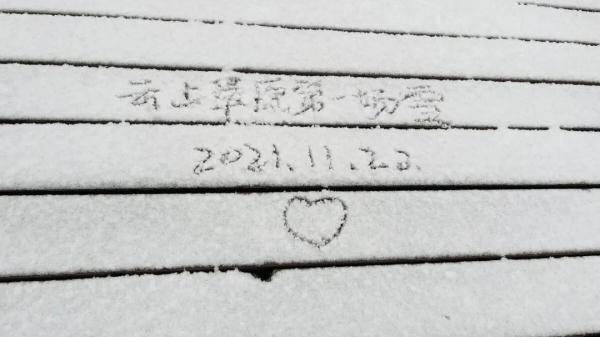 云上草原第一场雪
2021.11.23.